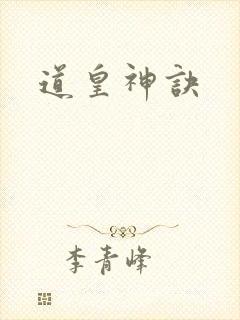 道皇神訣
李青峰